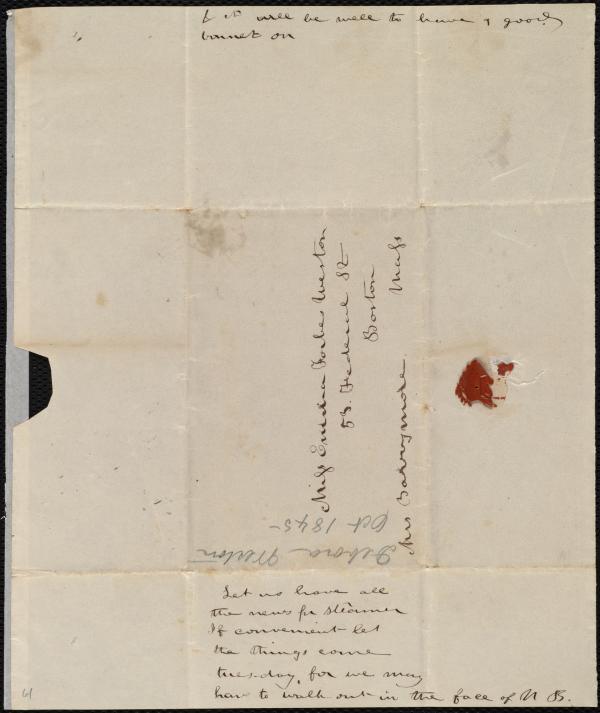 & it will be well to have a good
bonnet on
Miss Emma Forbes Weston
53. Federal St
Boston
Mrs Barrymore. Mass
Debora Weston
Oct 1845-
Let us have all
the news pr steamer
If convenient let
the things come
tuesday, for we may
have to walk out in the face of N B.